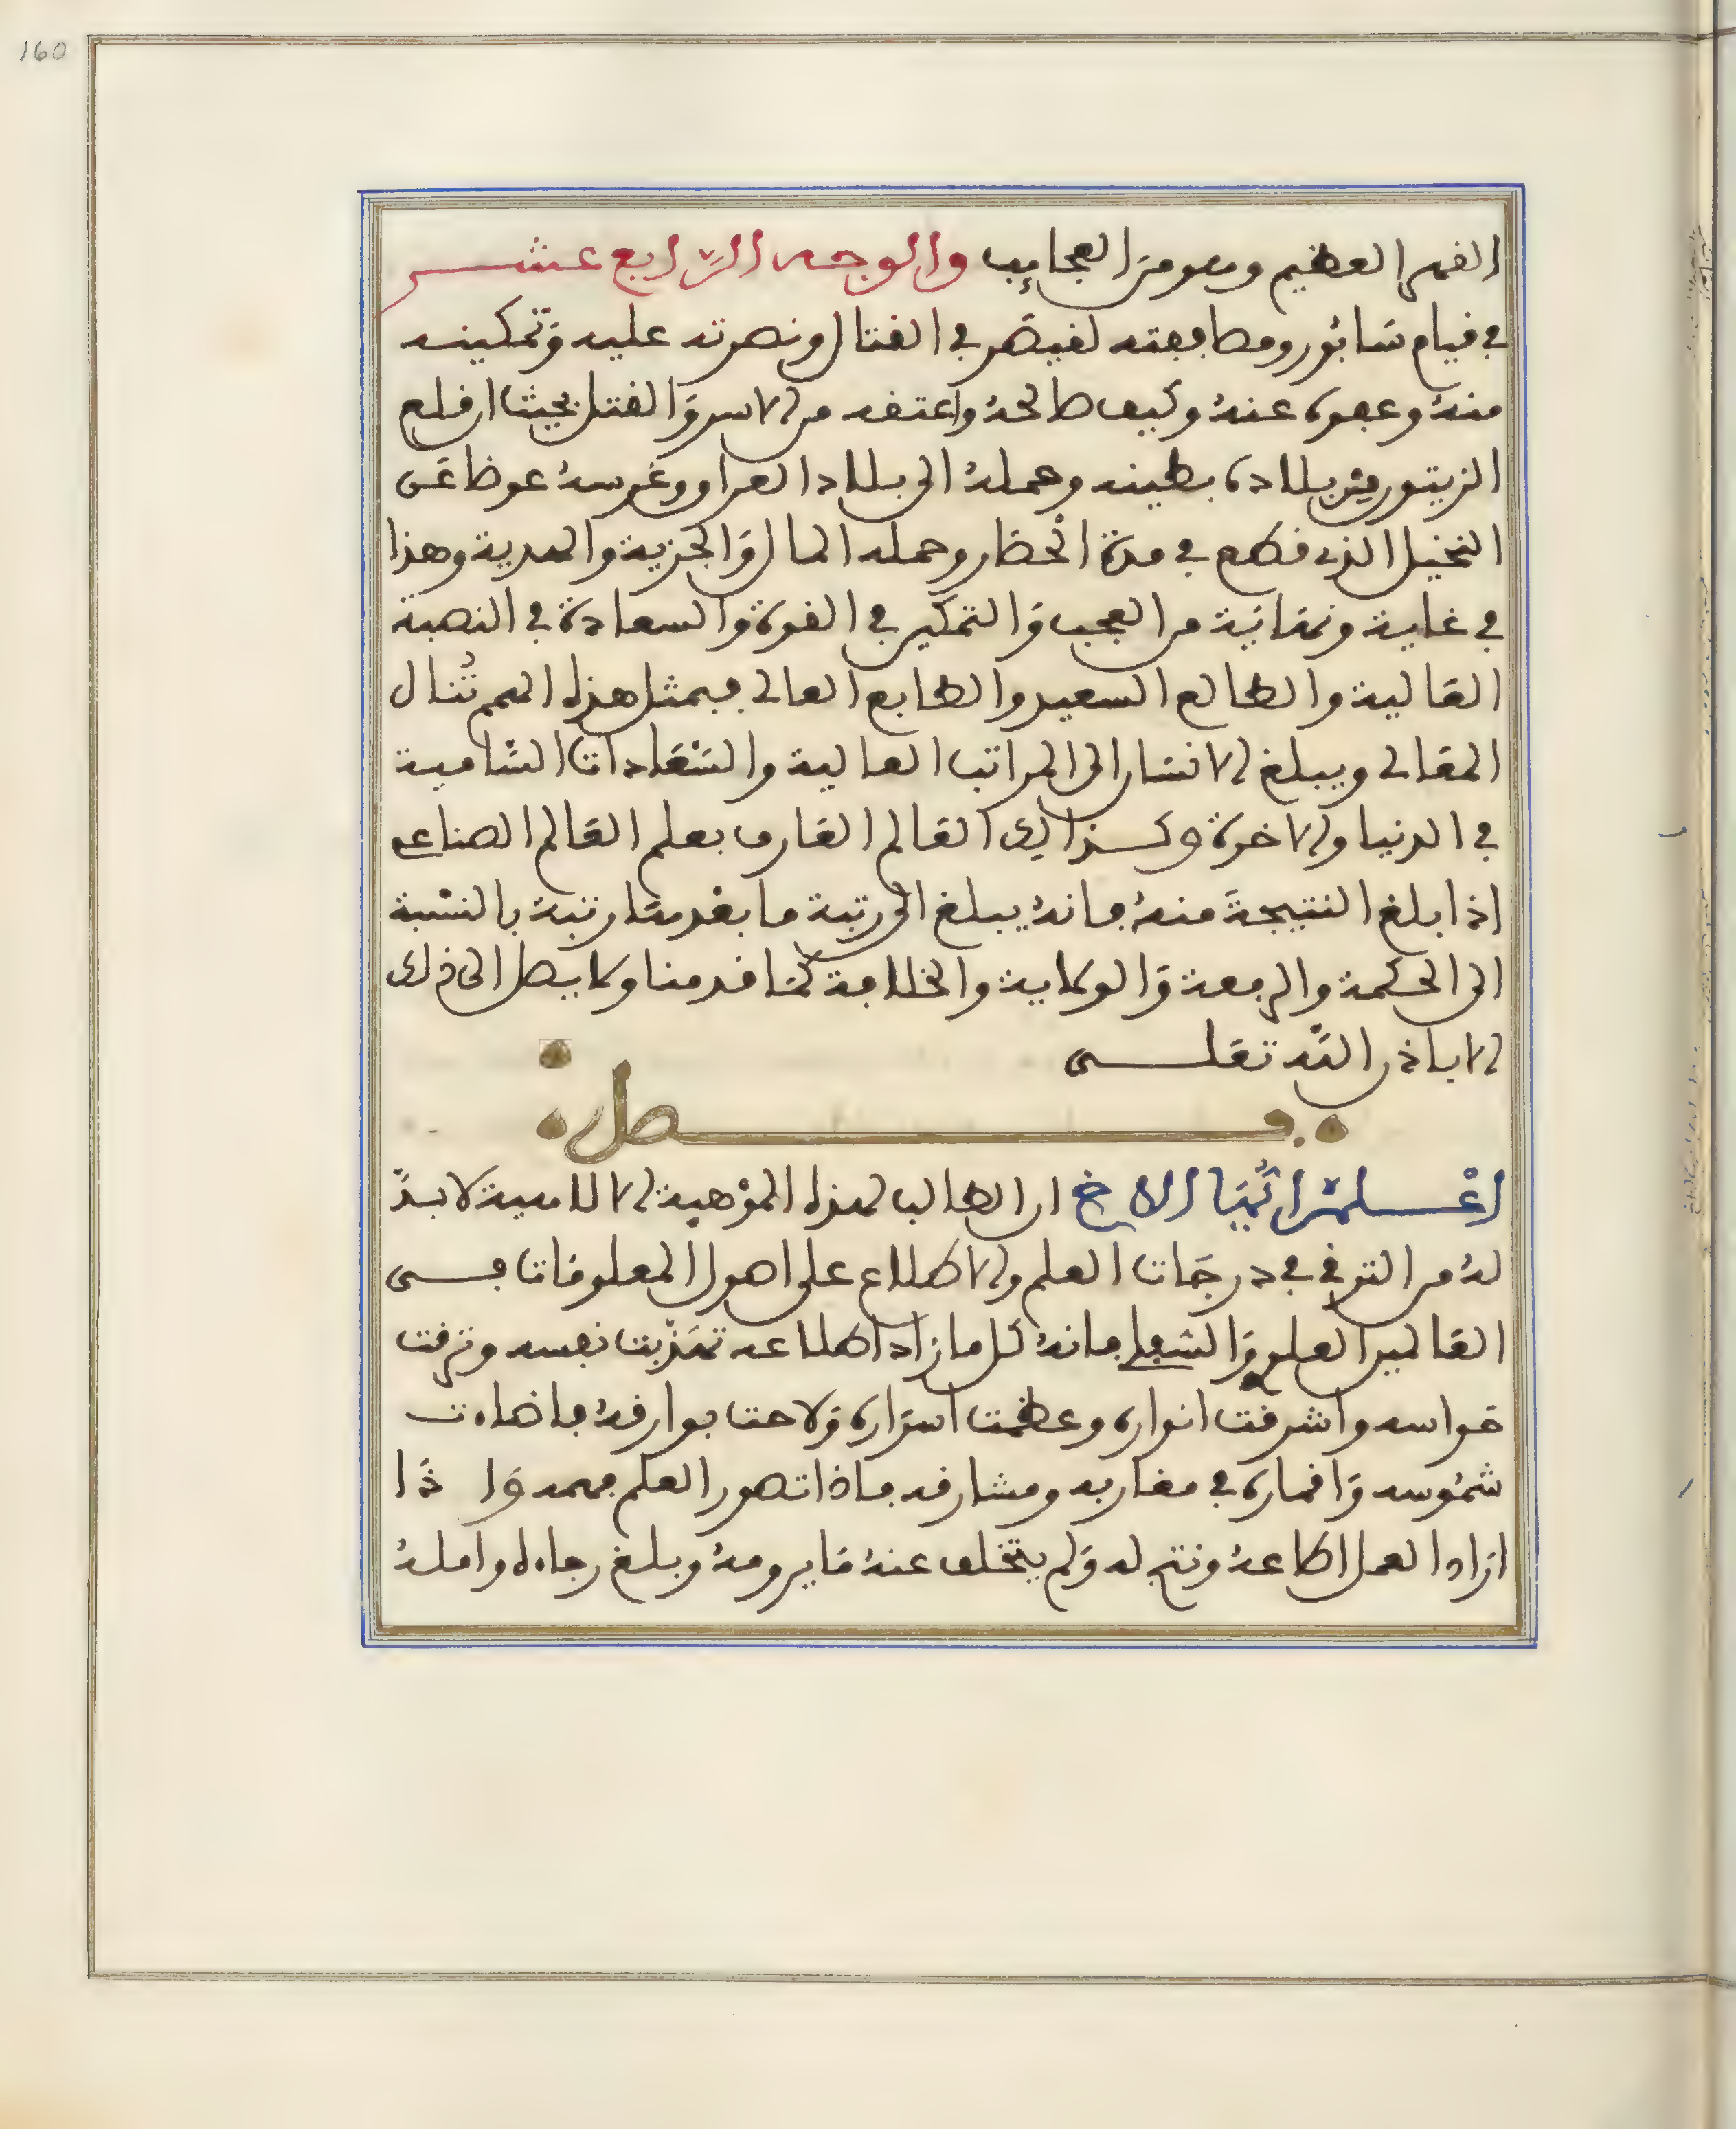 160
القهر العظيم وهو من العجايب والوجه الرابع عشر
في قيام سابور ومصافعته لقيصر في القتال ونصرته عليه وتمكينه
منه وعفوه عنه وكيف صالحه واعتقه من الاسر والقتل بحيث ان قلع
الزيتون من بلاده بطينه وحمله الى بلاد العراق وغرسه عوضا عن
النخيل الذي قطع في مدة الحصار وحمله المال والجزية والهدية وهذا
في غاية ونهاية من العجب والتمكين في القوة والسعادة في النصبة
العالية والطالع السعيد والطابع العالي فبمثل هذه الهمم تنال
المعالي ويبلغ الانسان الى المراتب العالية والسعادات السامية
في الدنيا والاخرة وكذالك العالم العارف بعلم العالم الصناعي
اذا بلغ النتيجة منه فانه يبلغ الى رتبة ما بعدها رتبة بالنسبة
الى الحكمة والرفعة والولاية والخلافة كما قدمنا ولا يصل الى ذلك
الا باذن الله تعلى
فصل
اعلم ايها الاخ ان الطالب لهذه الموهبة الالاهية لا بد
له من الترقي في درجات العلم والاطلاع على اصول المعلومات في
العالمين العلوي والسفلي فانه كل ما زاد اطلاعه تهذبت نفسه وترقت
حواسه واشرقت انواره وعظمت اسراره ولاحت بوارقه فاضاءت
شموسه واقماره في مغاربه ومشارقه فاذا تصور العلم فهمه واذا
اراد العمل اطاعه ونتج له ولم يتخلف عنه ما يرومه وبلغ رجاءه وامله